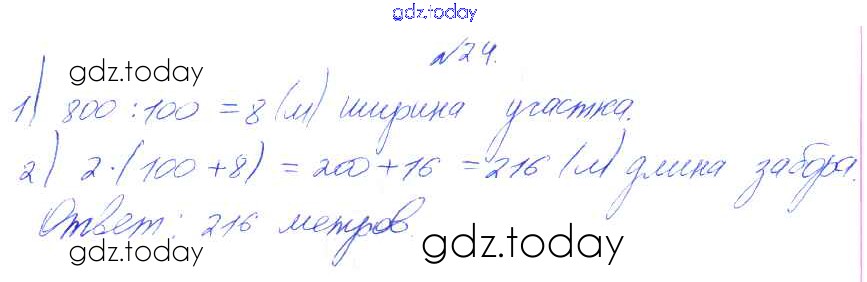 gdz.today
№24.
gdz.today
1) 800 : 100 = 8 (м) ширина участка.
2) 2·(100+8) = 200+16 = 216 (м) длина забора.
Ответ: 216 метров.
gdz.today
gdz.today